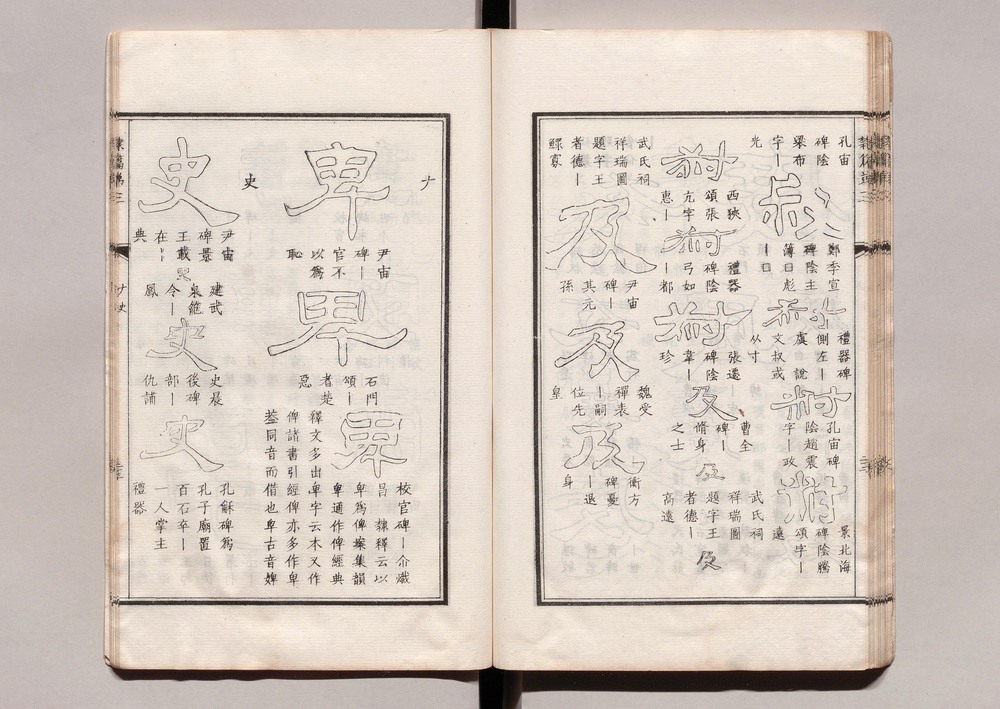 孔宙
碑陰
梁布
字｜
光
叔
鄭季宣
碑陰主
簿日彪
｜口
叔
禮器碑
側左｜
虞說
文叔或
从寸
孔宙碑
陰趙震
字｜政
景北海
碑陰騰
頌字｜
遠
西狹
頌張
亢字
惠｜
禮器
碑陰
弓如
｜都
張遷
碑陰
韋｜
珍
及
曹全
碑｜
脩身
之士
及
武氏祠
祥瑞圖
題字王
者德｜
高遠
及
武氏祠
祥瑞圖
題字王
者德｜
鰥寡
及
尹宙
碑｜
其元
孫
及
魏受
禪表
｜嗣
位先
皇
及
衡方
碑憂
｜退
身
𠂇
卑
尹宙
碑｜
官不
以爲
恥
卑
石門
頌｜
者楚
惡
卑
校官碑｜介
昌 隸釋云以
卑爲俾案集韻
卑通作俾經典
釋文多出卑字云木又作
俾諸書引經俾亦多作卑
葢同音而借也卑古音婢
史
史
尹宙
碑景
王載
在〻
典
史
建武
泉範
令｜
鳳
史
史晨
後碑
部｜
仇誧
史
孔龢碑爲
孔子廟置
百石卒｜
一人掌主
禮器